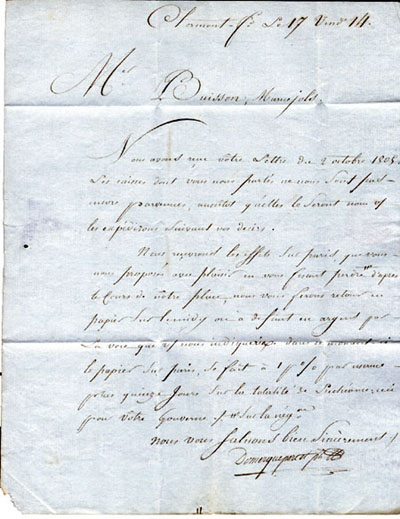 Clermont-fd. Le 17 Vendre 14.
Mr. Buisson, Marvejols,
Nous avons reçu votre Lettre du 2 octobre 1805
Les caisses dont vous nous parlés ne nous sont pas
encore parvenues, aussitôt quelles le seront nous
les expédirons suivant vos desirs.
Nous recevrons les effets sur paris que vous
nous proposés avec plaisir en vous fesant perdre d'après
le Cours de votre place, nous vous ferons retour en
papier sur le midy ou a defaut en argent par
La voie que nous indiquerés dans ce moment ci
le papier sur paris, se fait à 1 p% par
quinze Jours sur la totalité de
pour Votre Gouverne
nous vous Saluons bien Sincèrement